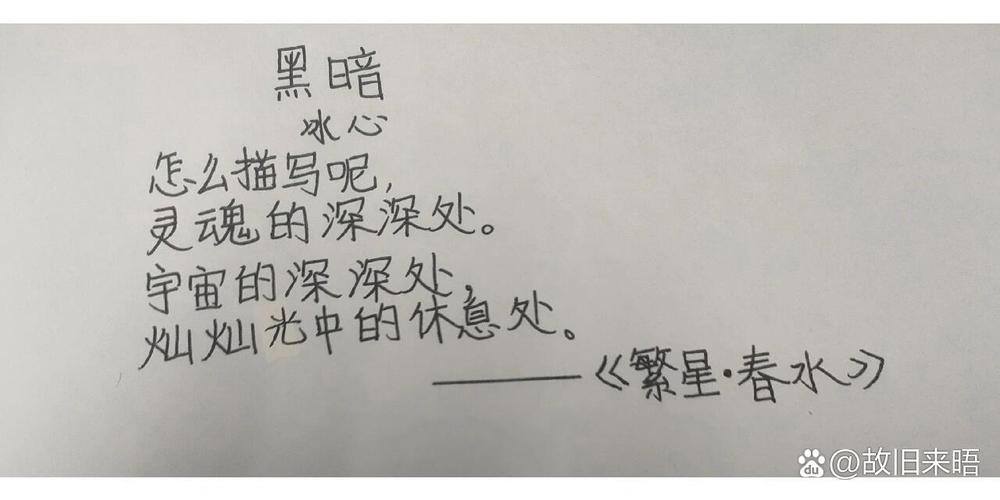 黑暗
冰心
怎么描写呢,
灵魂的深深处。
宇宙的深深处,
灿灿光中的休息处。
——《繁星·春水》
du @故旧来晤